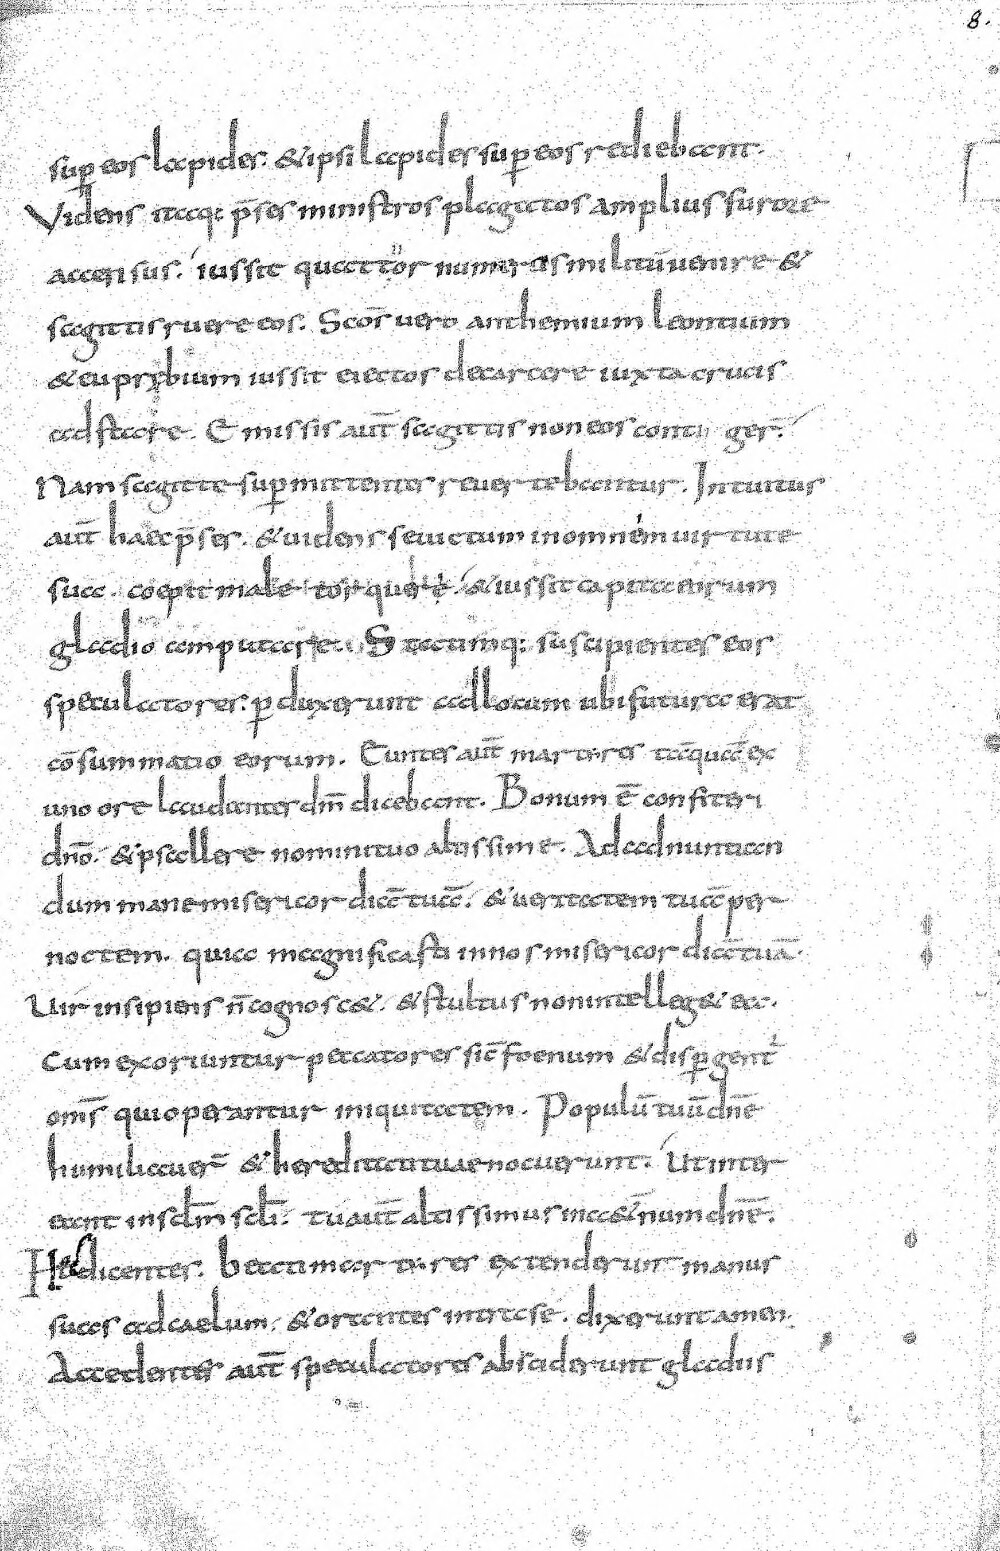 8.
sup̄ eos lapides. & ipsi lapides sup̄ eos rediebant.
Videns itaq: p̄ses ministros plagatos amplius furore
accensus. iussit quattuor numeros militū venire &
sagittis ruere eos. Scōs vero anthemium leontium
& euprybium iussit eiectos de carcere iuxta crucis
adstare. Emissis aut̄ sagittis non eos contiger̄.
Nam sagitte sup̄ mittentes revertebantur. Intuitus
aut̄ haec p̄ses. & videns se victum in omnem virtute
sua. coepit male torquere. & iussit capita eorum
gladio amputare. Statimq: suscipientes eos
speculatores: p̄duxerunt ad locum ubi futura erat
cōsummatio eorum. Euntes aut̄ martyres tāquā ex
uno ore laudantes dm̄ dicebant. Bonum ē confiteri
dnō. & psallere nomini tuo altissime. Ad adnuntian
dum mane misericordiā tuā. & veritatem tuā per
noctem. quia magnificasti in nos misericordiā tuā.
Vir insipiens n̄ cognosc&. & stultus non intelleg& ea.
Cum exoriuntur peccatores sic̄ foenum & disp̄gent
oms̄ qui operantur iniquitatem. Populū tuū dnē
humiliaver̄ & hereditati tuae nocuerunt. Ut inter
eant in sclm̄ scli̅. tu aut̄ altissimus in a&̄num dnē.
Hec dicentes. beati martyres extenderunt manus
suas ad caelum. & orantes intra se. dixerunt amen.
Accedentes aut̄ speculatores absciderunt gladiis